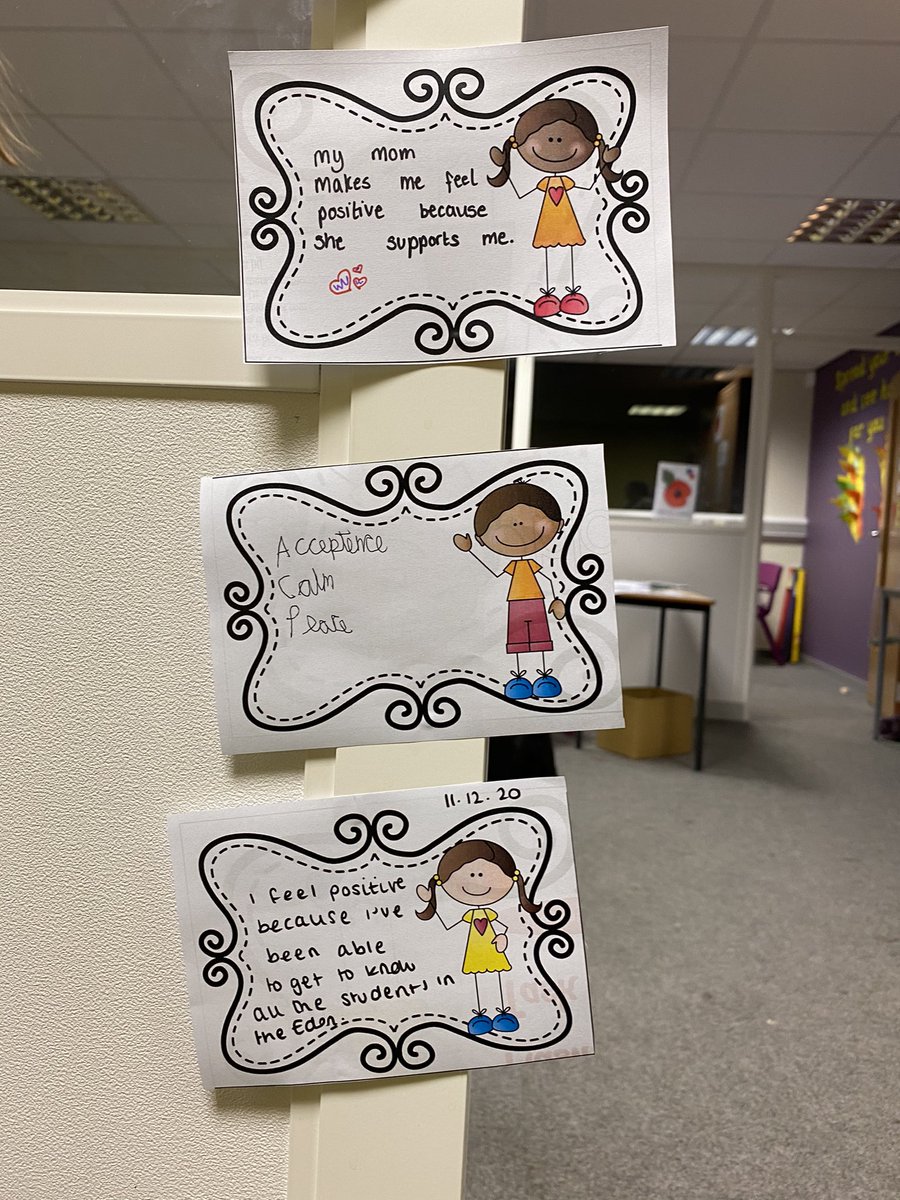 My mom
makes me feel
positive because
she supports me.
Acceptence
Calm
Peace
11.12.20
I feel positive
because I've
been able
to get to know
all the students in
the
Spread your
and see
for you